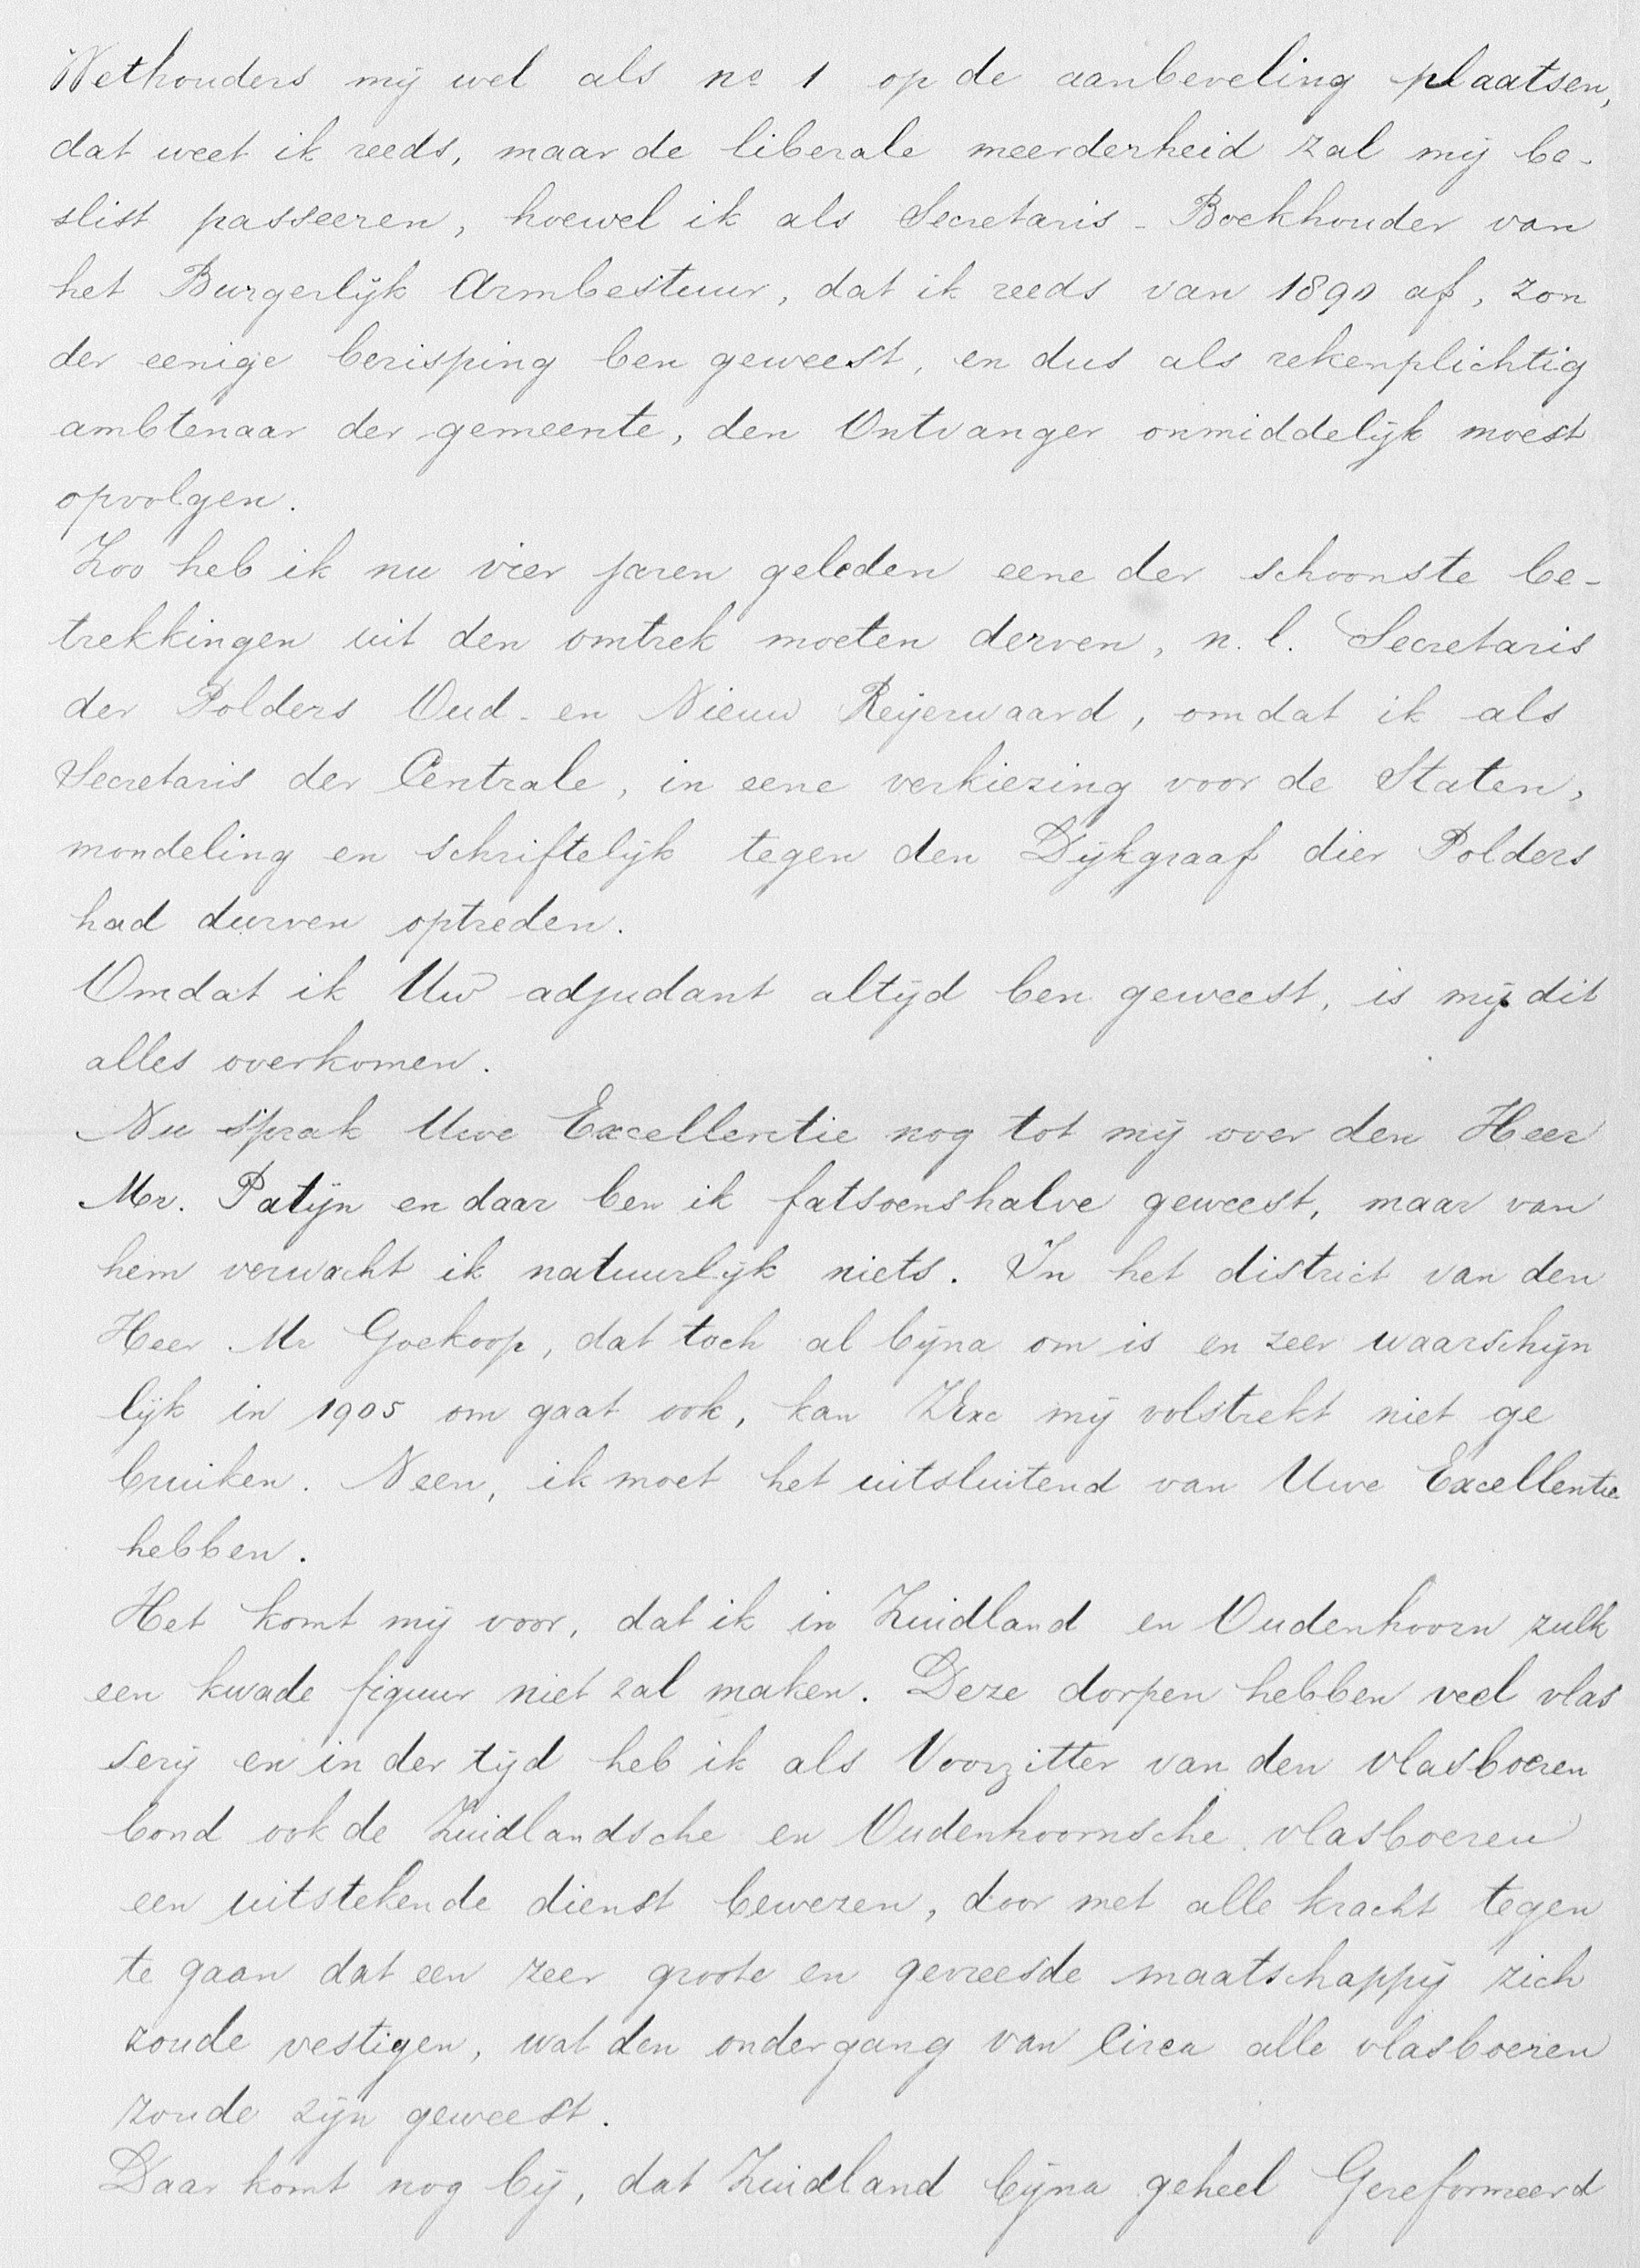 Wethouders mij wel als no 1 op de aanbeveling plaatsen,
dat weet ik reeds, maar de liberale meerderheid zal mij be-
slist passeeren, hoewel ik als Secretaris-Boekhouder van
het Burgerlijk Armbestuur, dat ik reeds van 1890 af, zon
der eenige berisping ben geweest, en dus als rekenplichtig
ambtenaar der gemeente, den Ontvanger onmiddelijk moest
opvolgen.
Zoo heb ik nu vier jaren geleden eene der schoonste be-
trekkingen uit den omtrek moeten derven, n.l. Secretaris
der Polders Oud- en Nieuw Reijerwaard, omdat ik als
Secretaris der Centrale, in eene verkiezing voor de Staten,
mondeling en schriftelijk tegen den Dijkgraaf dier Polders
had durven optreden.
Omdat ik Uw adjudant altijd ben geweest, is mij dit
alles overkomen.
Nu sprak Uwe Excellentie nog tot mij over den Heer
Mr. Patijn en daar ben ik fatsoenshalve geweest, maar van
hem verwacht ik natuurlijk niets. In het district van den
Heer Mr Goekoop, dat toch al bijna om is en zeer waarschijn
lijk in 1905 om gaat ook, kan ZExc mij volstrekt niet ge
bruiken. Neen, ik moet het uitsluitend van Uwe Excellentie
hebben.
Het komt mij voor, dat ik in Zuidland en Oudenhoorn zulk
een kwade figuur niet zal maken. Deze dorpen hebben veel vlas
serij en in der tijd heb ik als Voorzitter van den vlasboeren
bond ook de Zuidlandsche en Oudenhoornsche vlasboeren
een uitstekende dienst bewezen, door met alle kracht tegen
te gaan dat een zeer groote en gevreesde maatschappij zich
zoude vestigen, wat den ondergang van circa alle vlasboeren
zoude zijn geweest.
Daar komt nog bij, dat Zuidland bijna geheel Gereformeerd